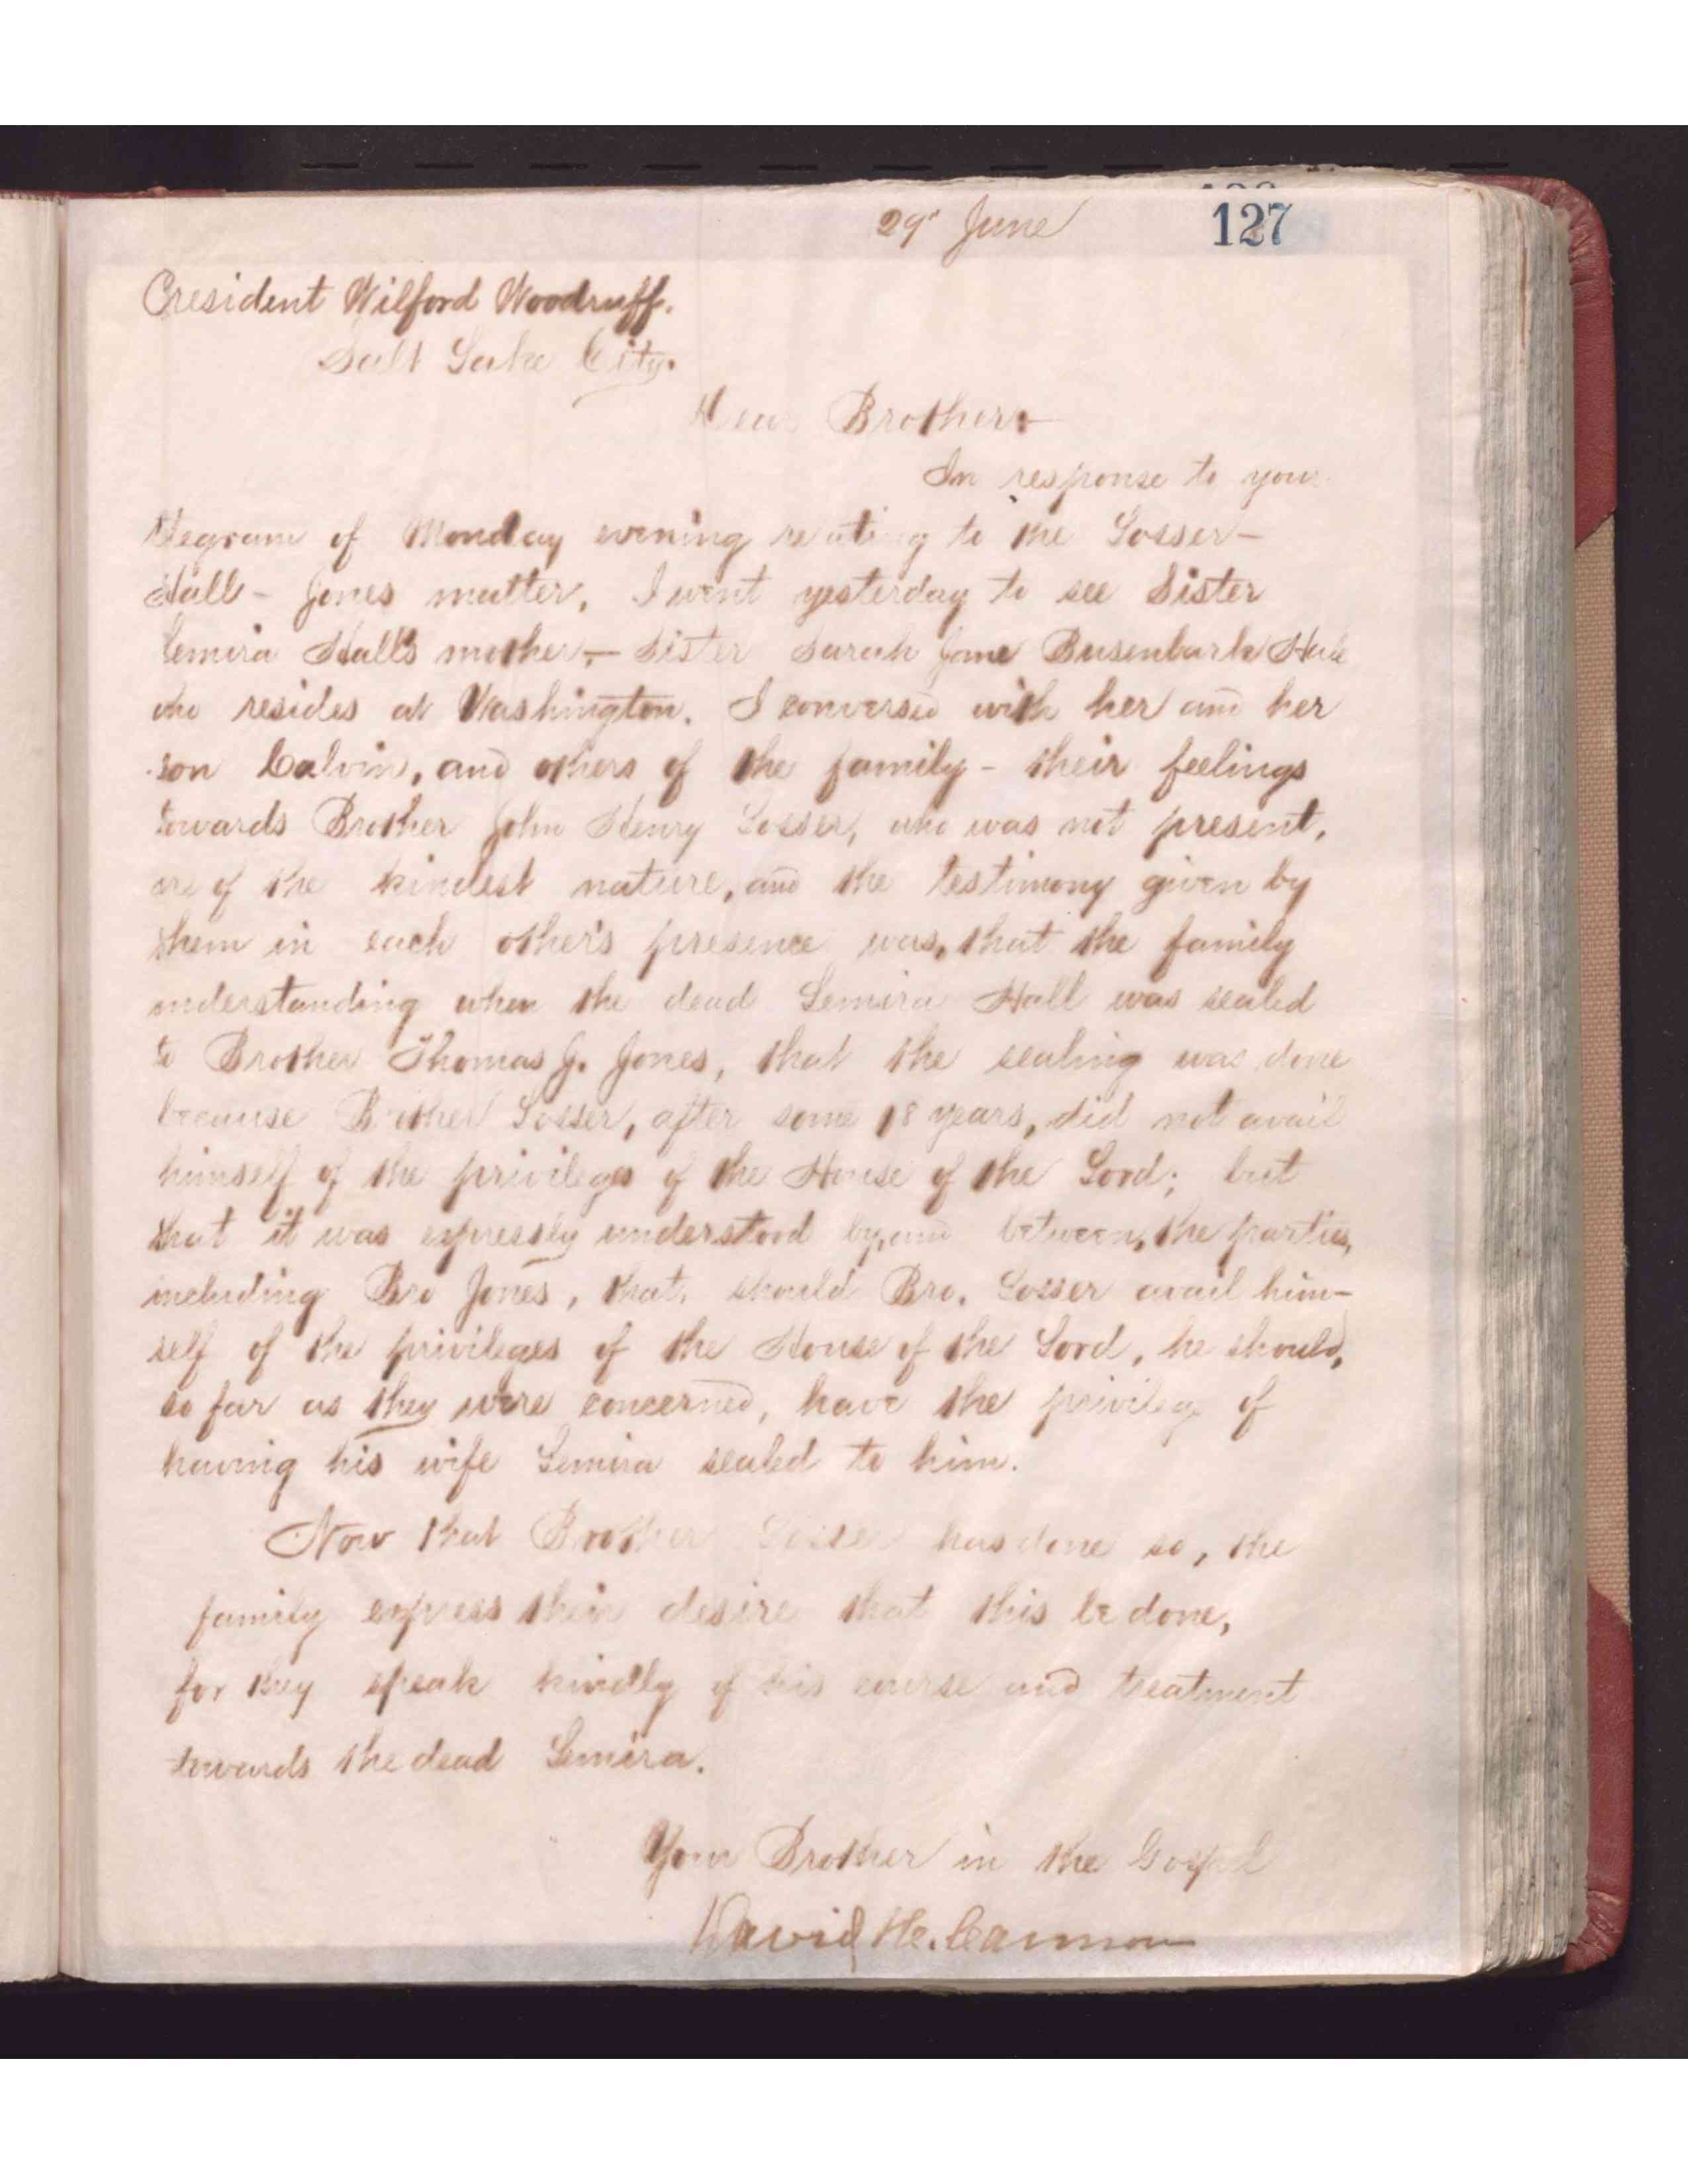 29" June
127
President Wilford Woodruff.
Salt Lake City.
Dear Brother:—
In response to your
telegram of Monday evening relating to the Losser—
Hall – Jones matter, I went yesterday to see Sister
Lemira Hall's mother,— Sister Sarah Jane Busenbark Hall
who resides at Washington. I conversed with her and her
son Calvin, and others of the family – their feelings
towards Brother John Henry Losser, who was not present,
are of the kindest nature, and the testimony given by
them in each other's presence was, that the family
understanding when the dead Lemira Hall was sealed
to Brother Thomas J. Jones, that the sealing was done
because Brother Losser, after some 18 years, did not avail
himself of the privileges of the House of the Lord; but
that it was expressly understood by, and between, the parties,
including Bro Jones, that, should Bro. Losser avail him-
self of the privileges of the House of the Lord, he should,
so far as they were concerned, have the privilege of
having his wife Lemira sealed to him.
Now that Brother Losser has done so, the
family express their desire that this be done,
for they speak kindly of his course and treatment
towards the dead Lemira.
Your Brother in the Gospel
David H. Cannon